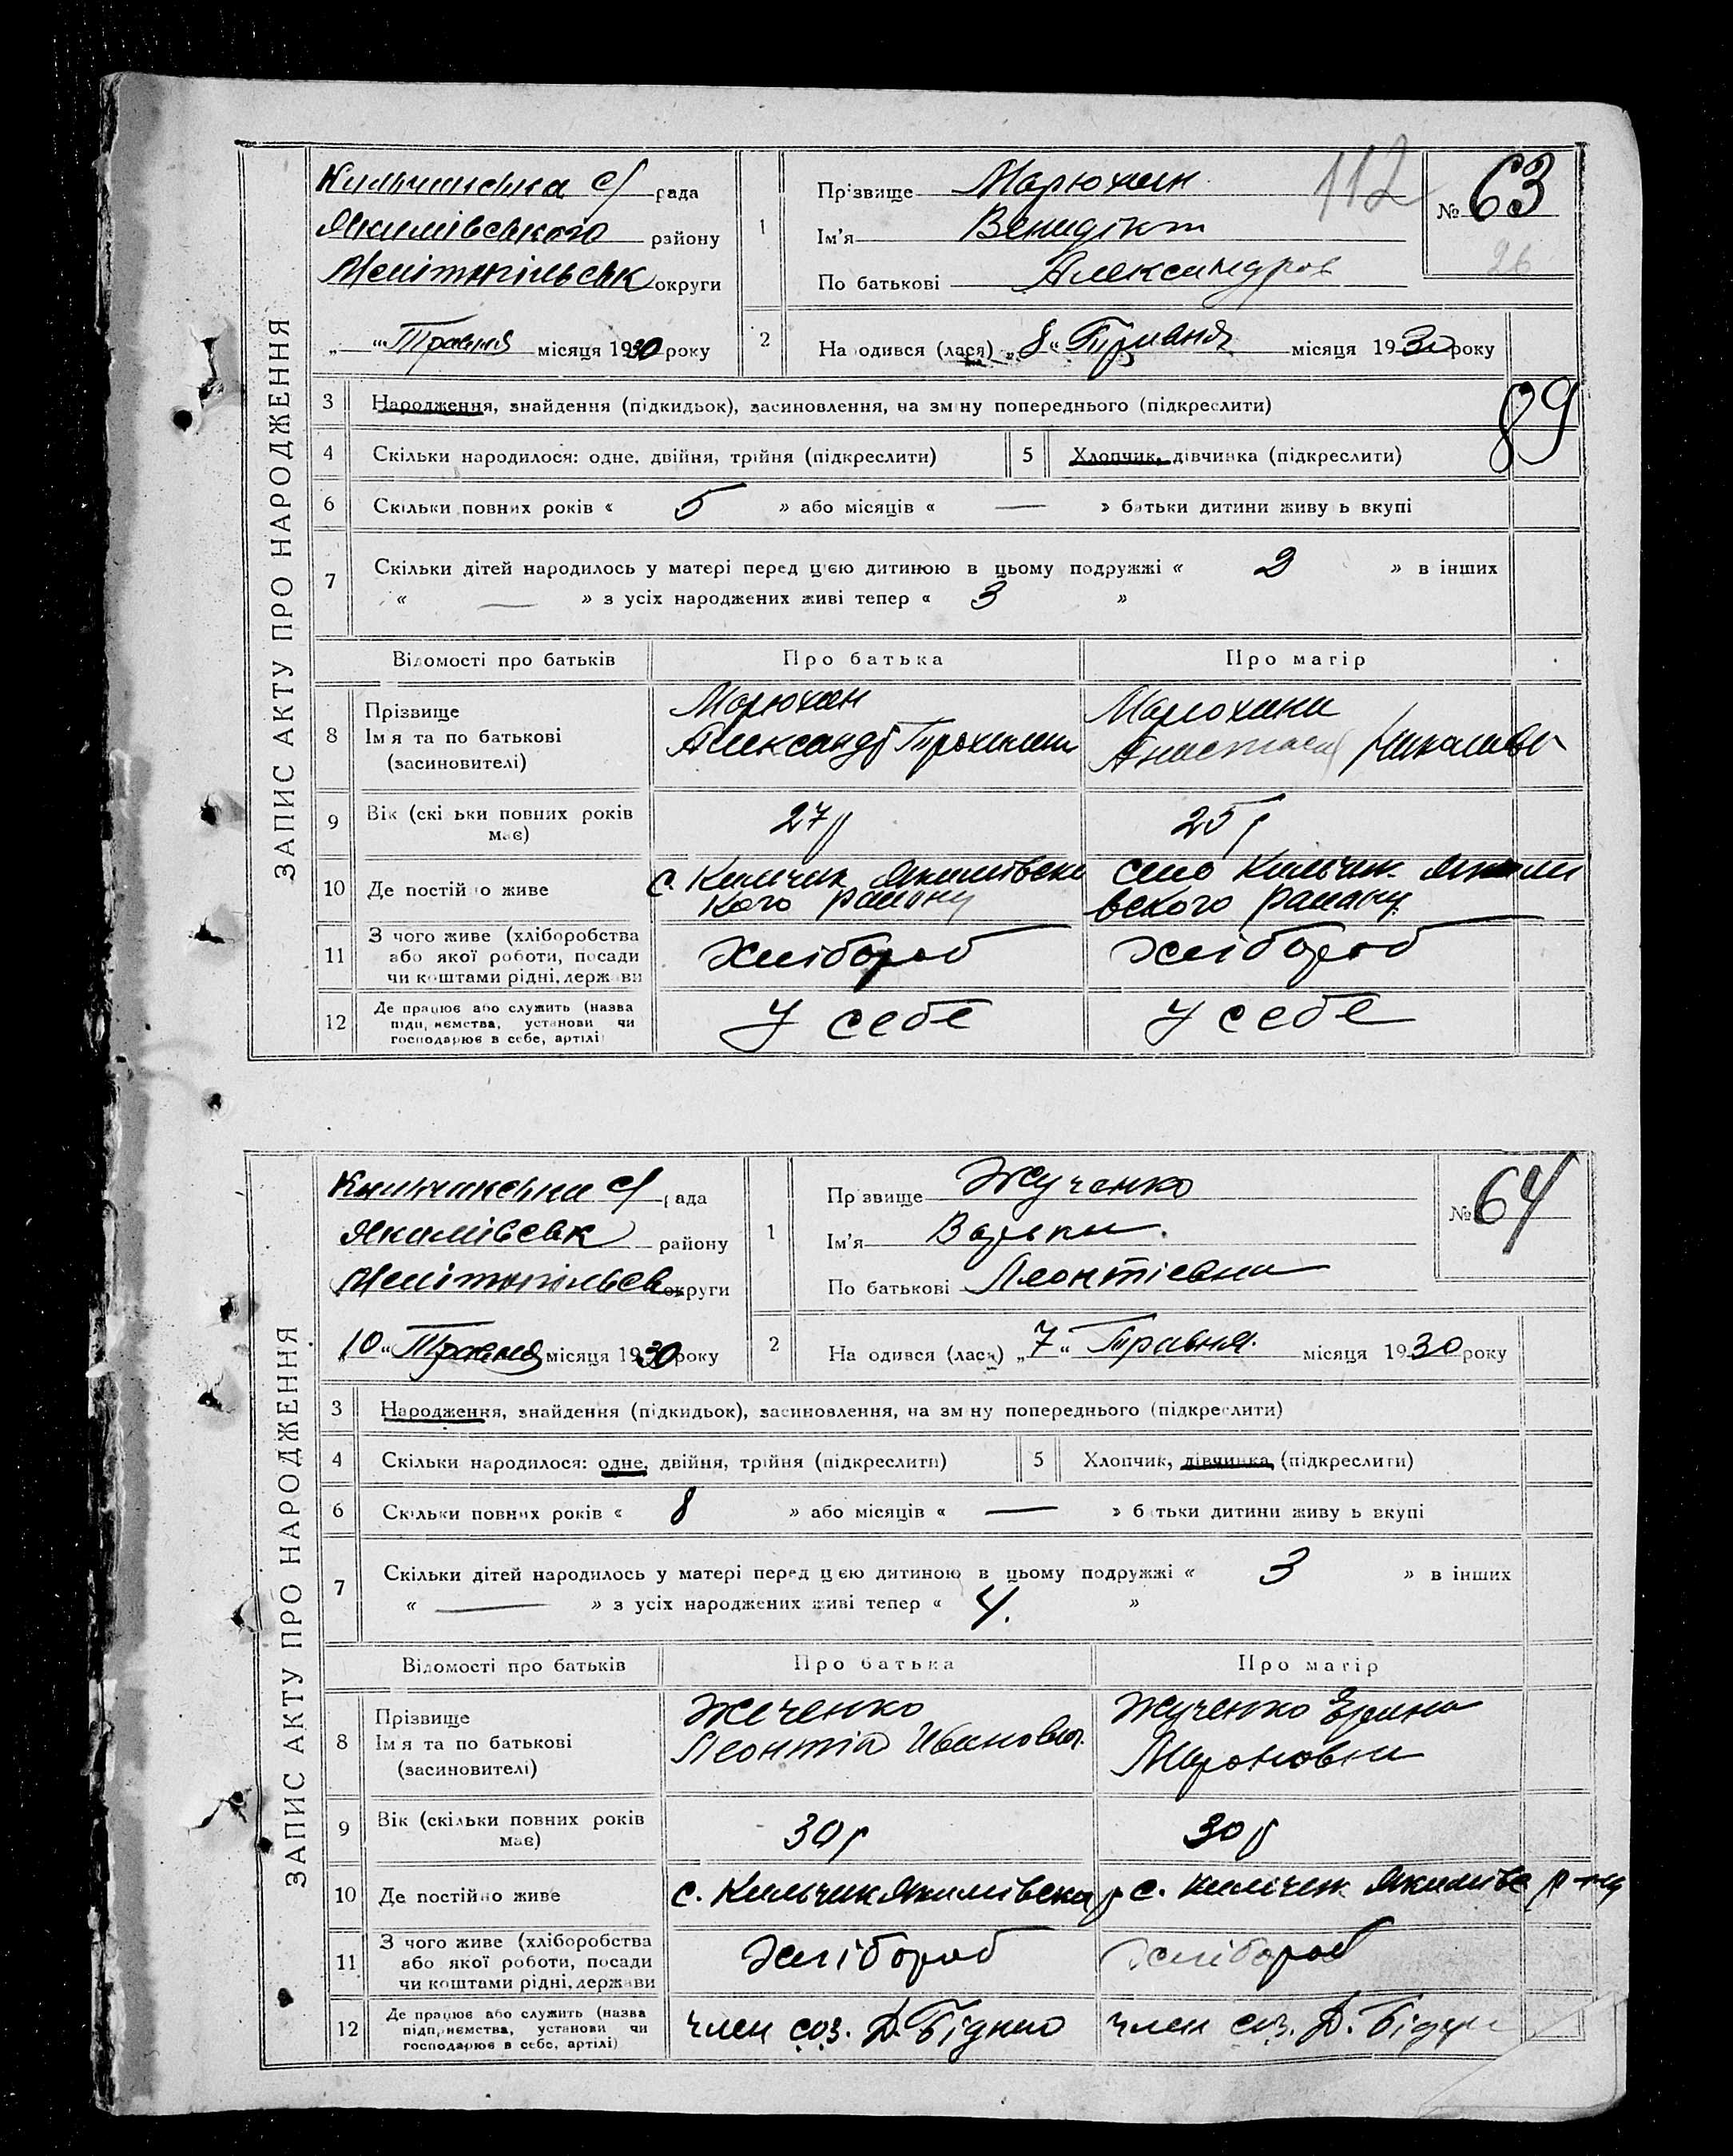 ЗАПИС АКТУ ПРО НАРОДЖЕННЯ
112
№ 63
26
Кильчикська с/ рада
Якимівського району
Мелітопільськ округи
„ “ Травня місяця 1930 року
1
Прізвище Марюхин
Ім'я Венидікт
По батькові Александров
2
На одився (лася) „8“ Травня місяця 1930 року
89
3 Народження, знайдення (підкидьок), засиновлення, на зміну попереднього (підкреслити)
4 Скільки народилося: одне, двійня, трійня (підкреслити) 5 Хлопчик, дівчинка (підкреслити)
6 Скільки повних років « 5 » або місяців « — » батьки дитини живу ь вкупі
7 Скільки дітей народилось у матері перед цією дитиною в цьому подружжі « 2 » в інших
« — » з усіх народжених живі тепер « 3 »
Відомості про батьків Про батька Про матір
8 Прізвище Ім'я та по батькові (засиновителі)
Марюхин
Александр
Марюхина
Анастасія Николаевн
9 Вік (скільки повних років має) 27 р 25 р
10 Де постійно живе
с. Кильчик Якимівськ
кого району
село Кильчик Якими
вского району
11 З чого живе (хліборобства
або якої роботи, посади
чи коштами рідні, держави
Хлібороб Хлібороб
12 Де працює або служить (назва
підприємства, установи чи
господарює в себе, артілі)
У себе У себе
ЗАПИС АКТУ ПРО НАРОДЖЕННЯ
№ 64
Кильчикська с/ рада
Якимівськ району
Мелітопільськ округи
„10“ Травня місяця 1930 року
1
Прізвище Жученко
Ім'я Варька
По батькові Леонтієвна
2
На одився (лася) „7“ Травня місяця 1930 року
3 Народження, знайдення (підкидьок), засиновлення, на зміну попереднього (підкреслити)
4 Скільки народилося: одне, двійня, трійня (підкреслити) 5 Хлопчик, дівчинка (підкреслити)
6 Скільки повних років « 8 » або місяців « — » батьки дитини живу ь вкупі
7 Скільки дітей народилось у матері перед цією дитиною в цьому подружжі « 3 » в інших
« — » з усіх народжених живі тепер « 4. »
Відомості про батьків Про батька Про матір
8 Прізвище Ім'я та по батькові (засиновителі)
Жеченко
Леонтій Иванович
Жученко Ерина
Мироновна
9 Вік (скільки повних років має) 30 р 30 р
10 Де постійно живе
с. Кильчик Якимівска р
с. Кильчик Якимівс р-ну
11 З чого живе (хліборобства
або якої роботи, посади
чи коштами рідні, держави
Хлібороб Хлібороб
12 Де працює або служить (назва
підприємства, установи чи
господарює в себе, артілі)
член соз. Д. Бідного
член соз. Д. Бідн